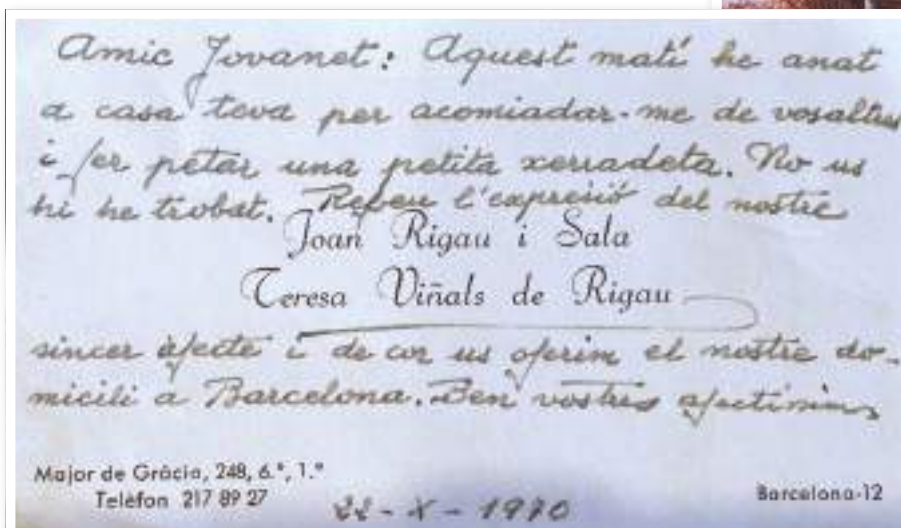 Amic Jovanet: Aquest matí he anat
a casa teva per acomiadar-me de vosaltres
i fer petar una petita xerradeta. No us
hi he trobat. Rebeu l'expresió del nostre
Joan Rigau i Sala
Teresa Viñals de Rigau
sincer afecte i de cor us oferim el nostre do-
micili a Barcelona. Ben vostres afectíssims
Major de Gràcia, 248, 6.º, 1.ª
Telèfon 217 89 27
22-X-1970
Barcelona-12